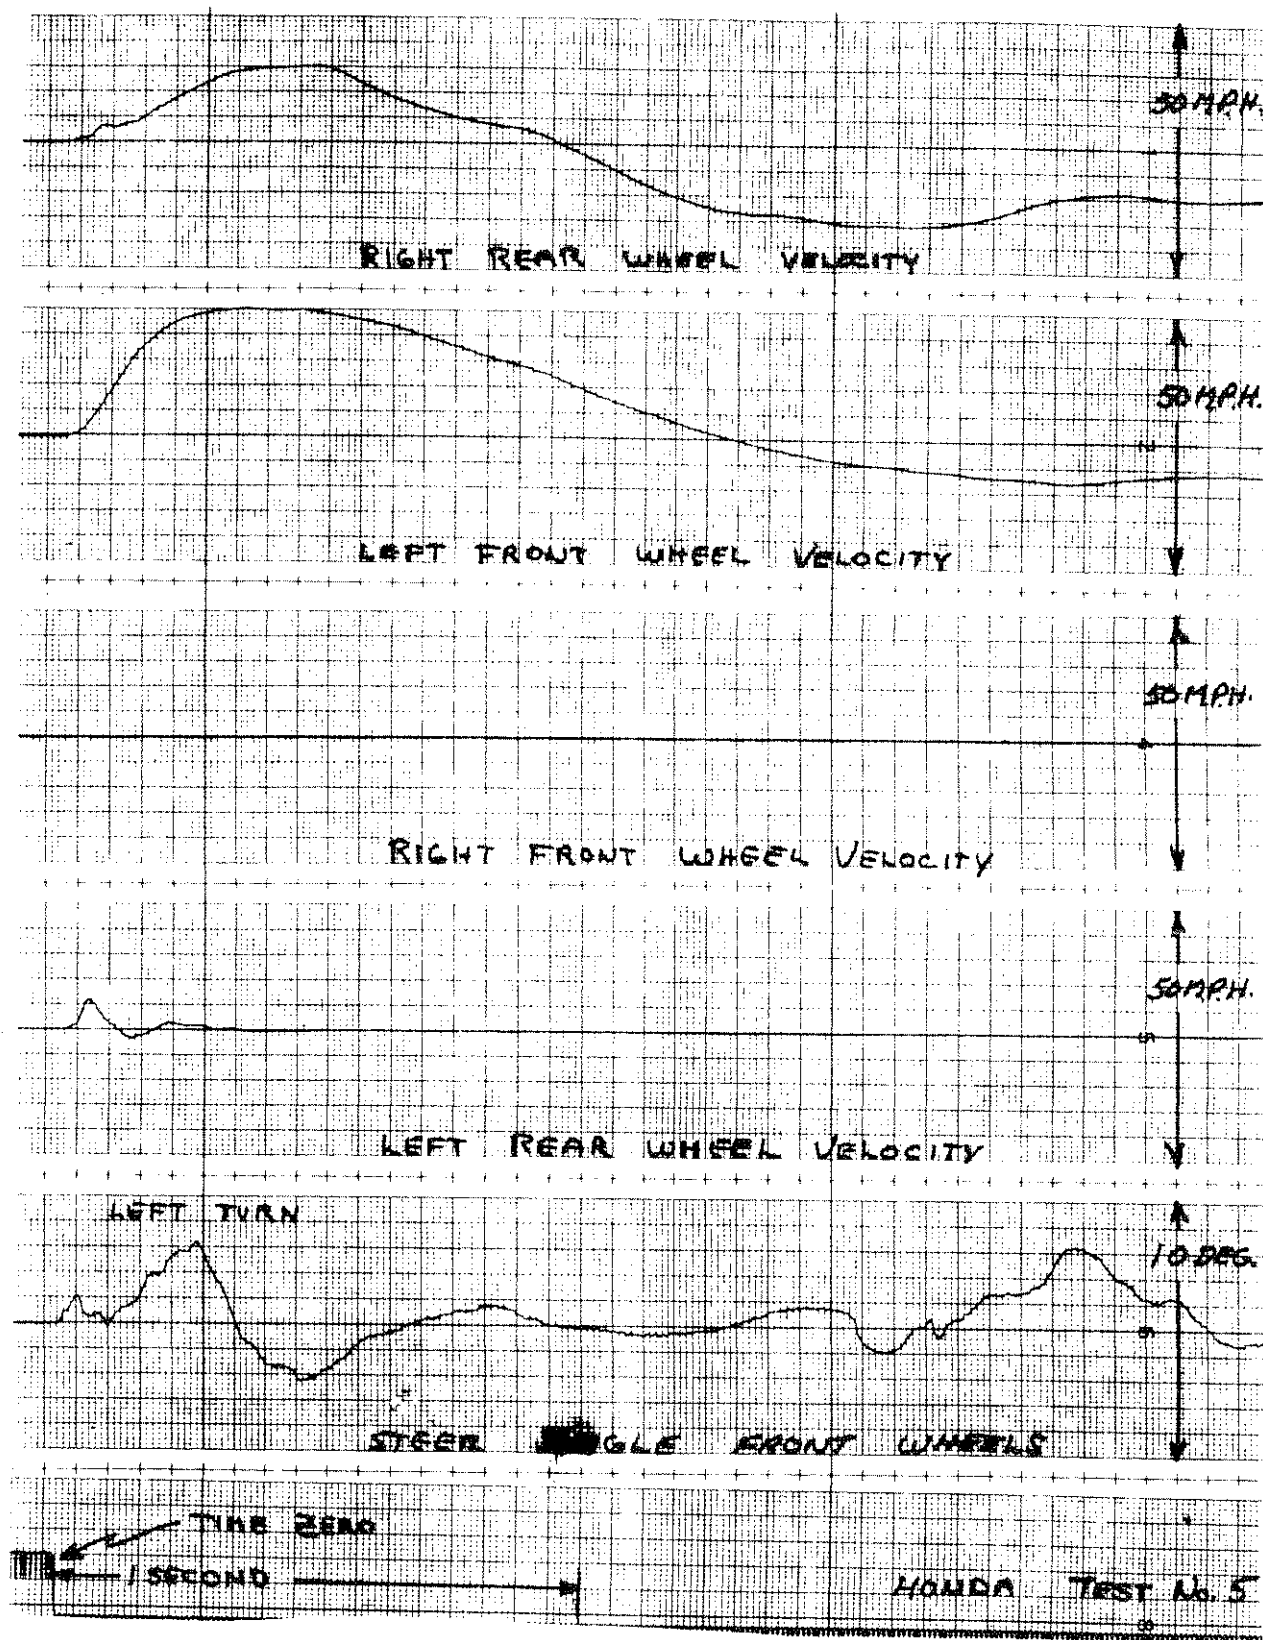 50 M.P.H.
1
RIGHT REAR WHEEL VELOCITY
50 M.P.H.
2
LEFT FRONT WHEEL VELOCITY
50 M.P.H.
4
RIGHT FRONT WHEEL VELOCITY
50 M.P.H.
5
LEFT REAR WHEEL VELOCITY
LEFT TURN
10 DEG.
6
STEER GLE FRONT WHEELS
TIME ZERO
1 SECOND
HONDA TEST No. 5
8